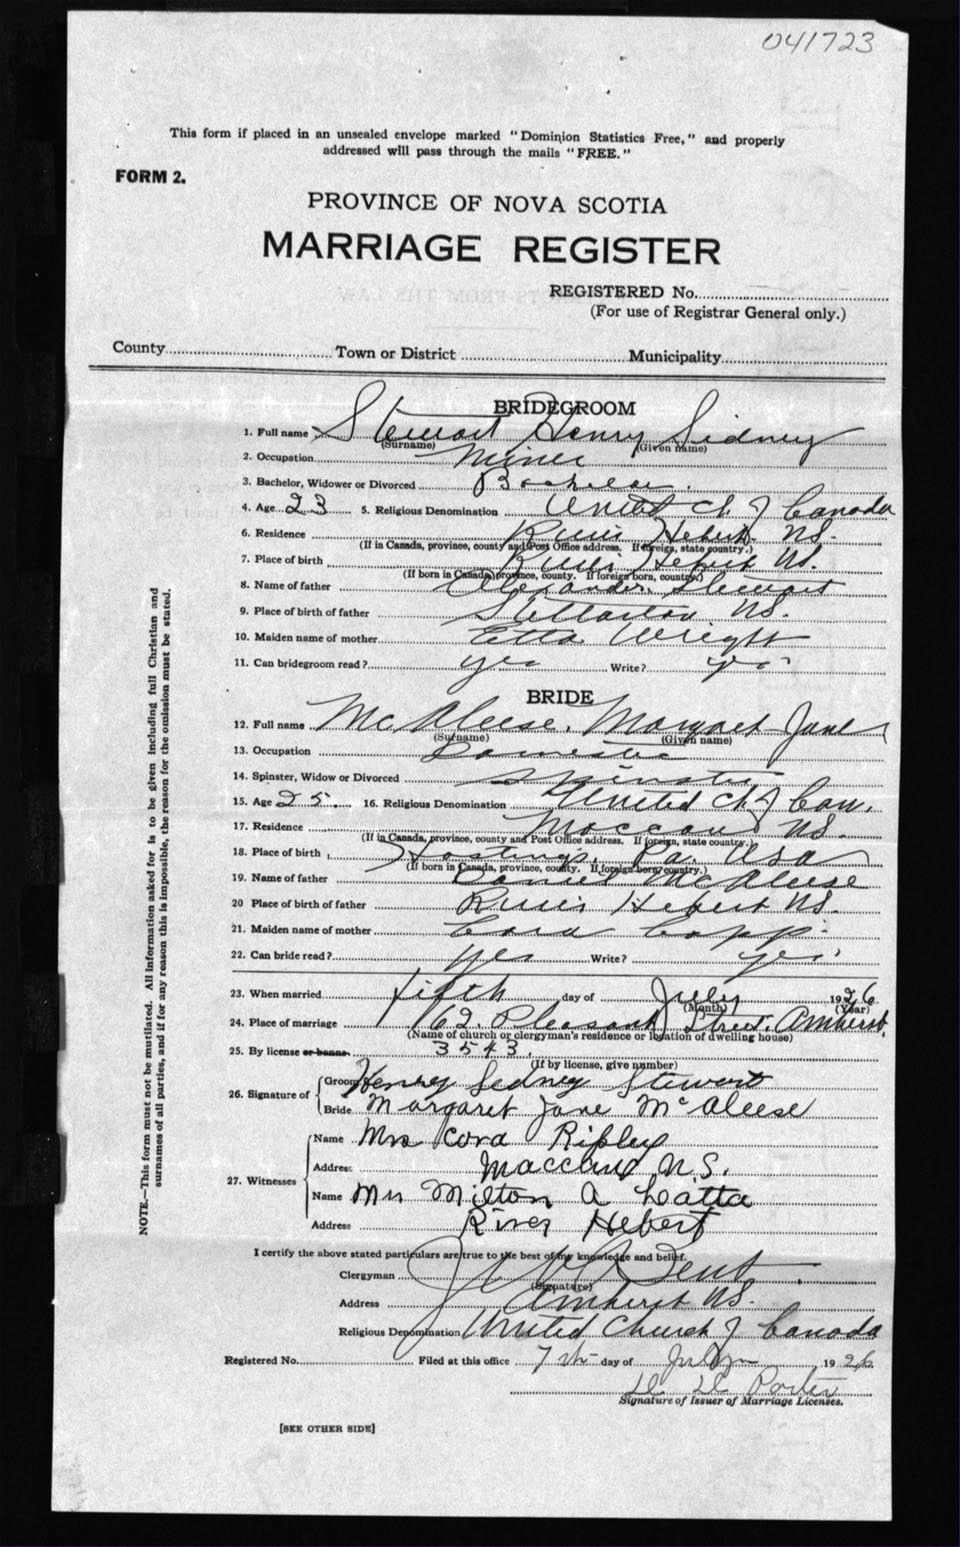 041723
This form if placed in an unsealed envelope marked "Dominion Statistics Free," and properly
addressed will pass through the mails "FREE."
FORM 2.
PROVINCE OF NOVA SCOTIA
MARRIAGE REGISTER
REGISTERED No.
(For use of Registrar General only.)
County Town or District Municipality
BRIDEGROOM
1. Full name Stewart Henry Sidney
(Surname) (Given name)
2. Occupation Miner
3. Bachelor, Widower or Divorced Bachelor.
4. Age 23 5. Religious Denomination United Ch. of Canada
6. Residence River Hebert NS.
(If in Canada, province, county and Post Office address. If foreign, state country.)
7. Place of birth River Hebert NS.
(If born in Canada, province, county. If foreign born, country.)
8. Name of father Alexander Stewart
9. Place of birth of father Stellarton NS.
10. Maiden name of mother Etta Wright
11. Can bridegroom read? yes Write? yes
BRIDE
12. Full name McAleese, Margaret Jane
(Surname) (Given name)
13. Occupation Domestic
14. Spinster, Widow or Divorced Spinster
15. Age 25 16. Religious Denomination United Ch of Can.
17. Residence Maccan NS.
(If in Canada, province, county and Post Office address. If foreign, state country.)
18. Place of birth Hastings, Pa. USA
(If born in Canada, province, county. If foreign born, country.)
19. Name of father Daniel McAleese
20 Place of birth of father River Hebert NS.
21. Maiden name of mother Cora Copp
22. Can bride read? yes Write? yes
23. When married fifth day of July 1926
(Month) (Year)
24. Place of marriage 62 Pleasant Street, Amherst
(Name of church or clergyman's residence or location of dwelling house)
25. By license or banns 3543
(If by license, give number)
26. Signature of Groom Henry Sedney Stewart
Bride Margaret Jane McAleese
27. Witnesses Name Mrs Cora Ripley
Address Maccan N.S.
Name Mrs Milton A Latta
Address River Hebert
I certify the above stated particulars are true to the best of my knowledge and belief.
Clergyman Dent
(Signature)
Address Amherst NS.
Religious Denomination United Church of Canada
Registered No. Filed at this office 7th day of July 1926
Porter
Signature of Issuer of Marriage Licenses.
[SEE OTHER SIDE]
NOTE.—This form must not be mutilated. All information asked for is to be given including full Christian and
surnames of all parties, and if for any reason this is impossible, the reason for the omission must be stated.